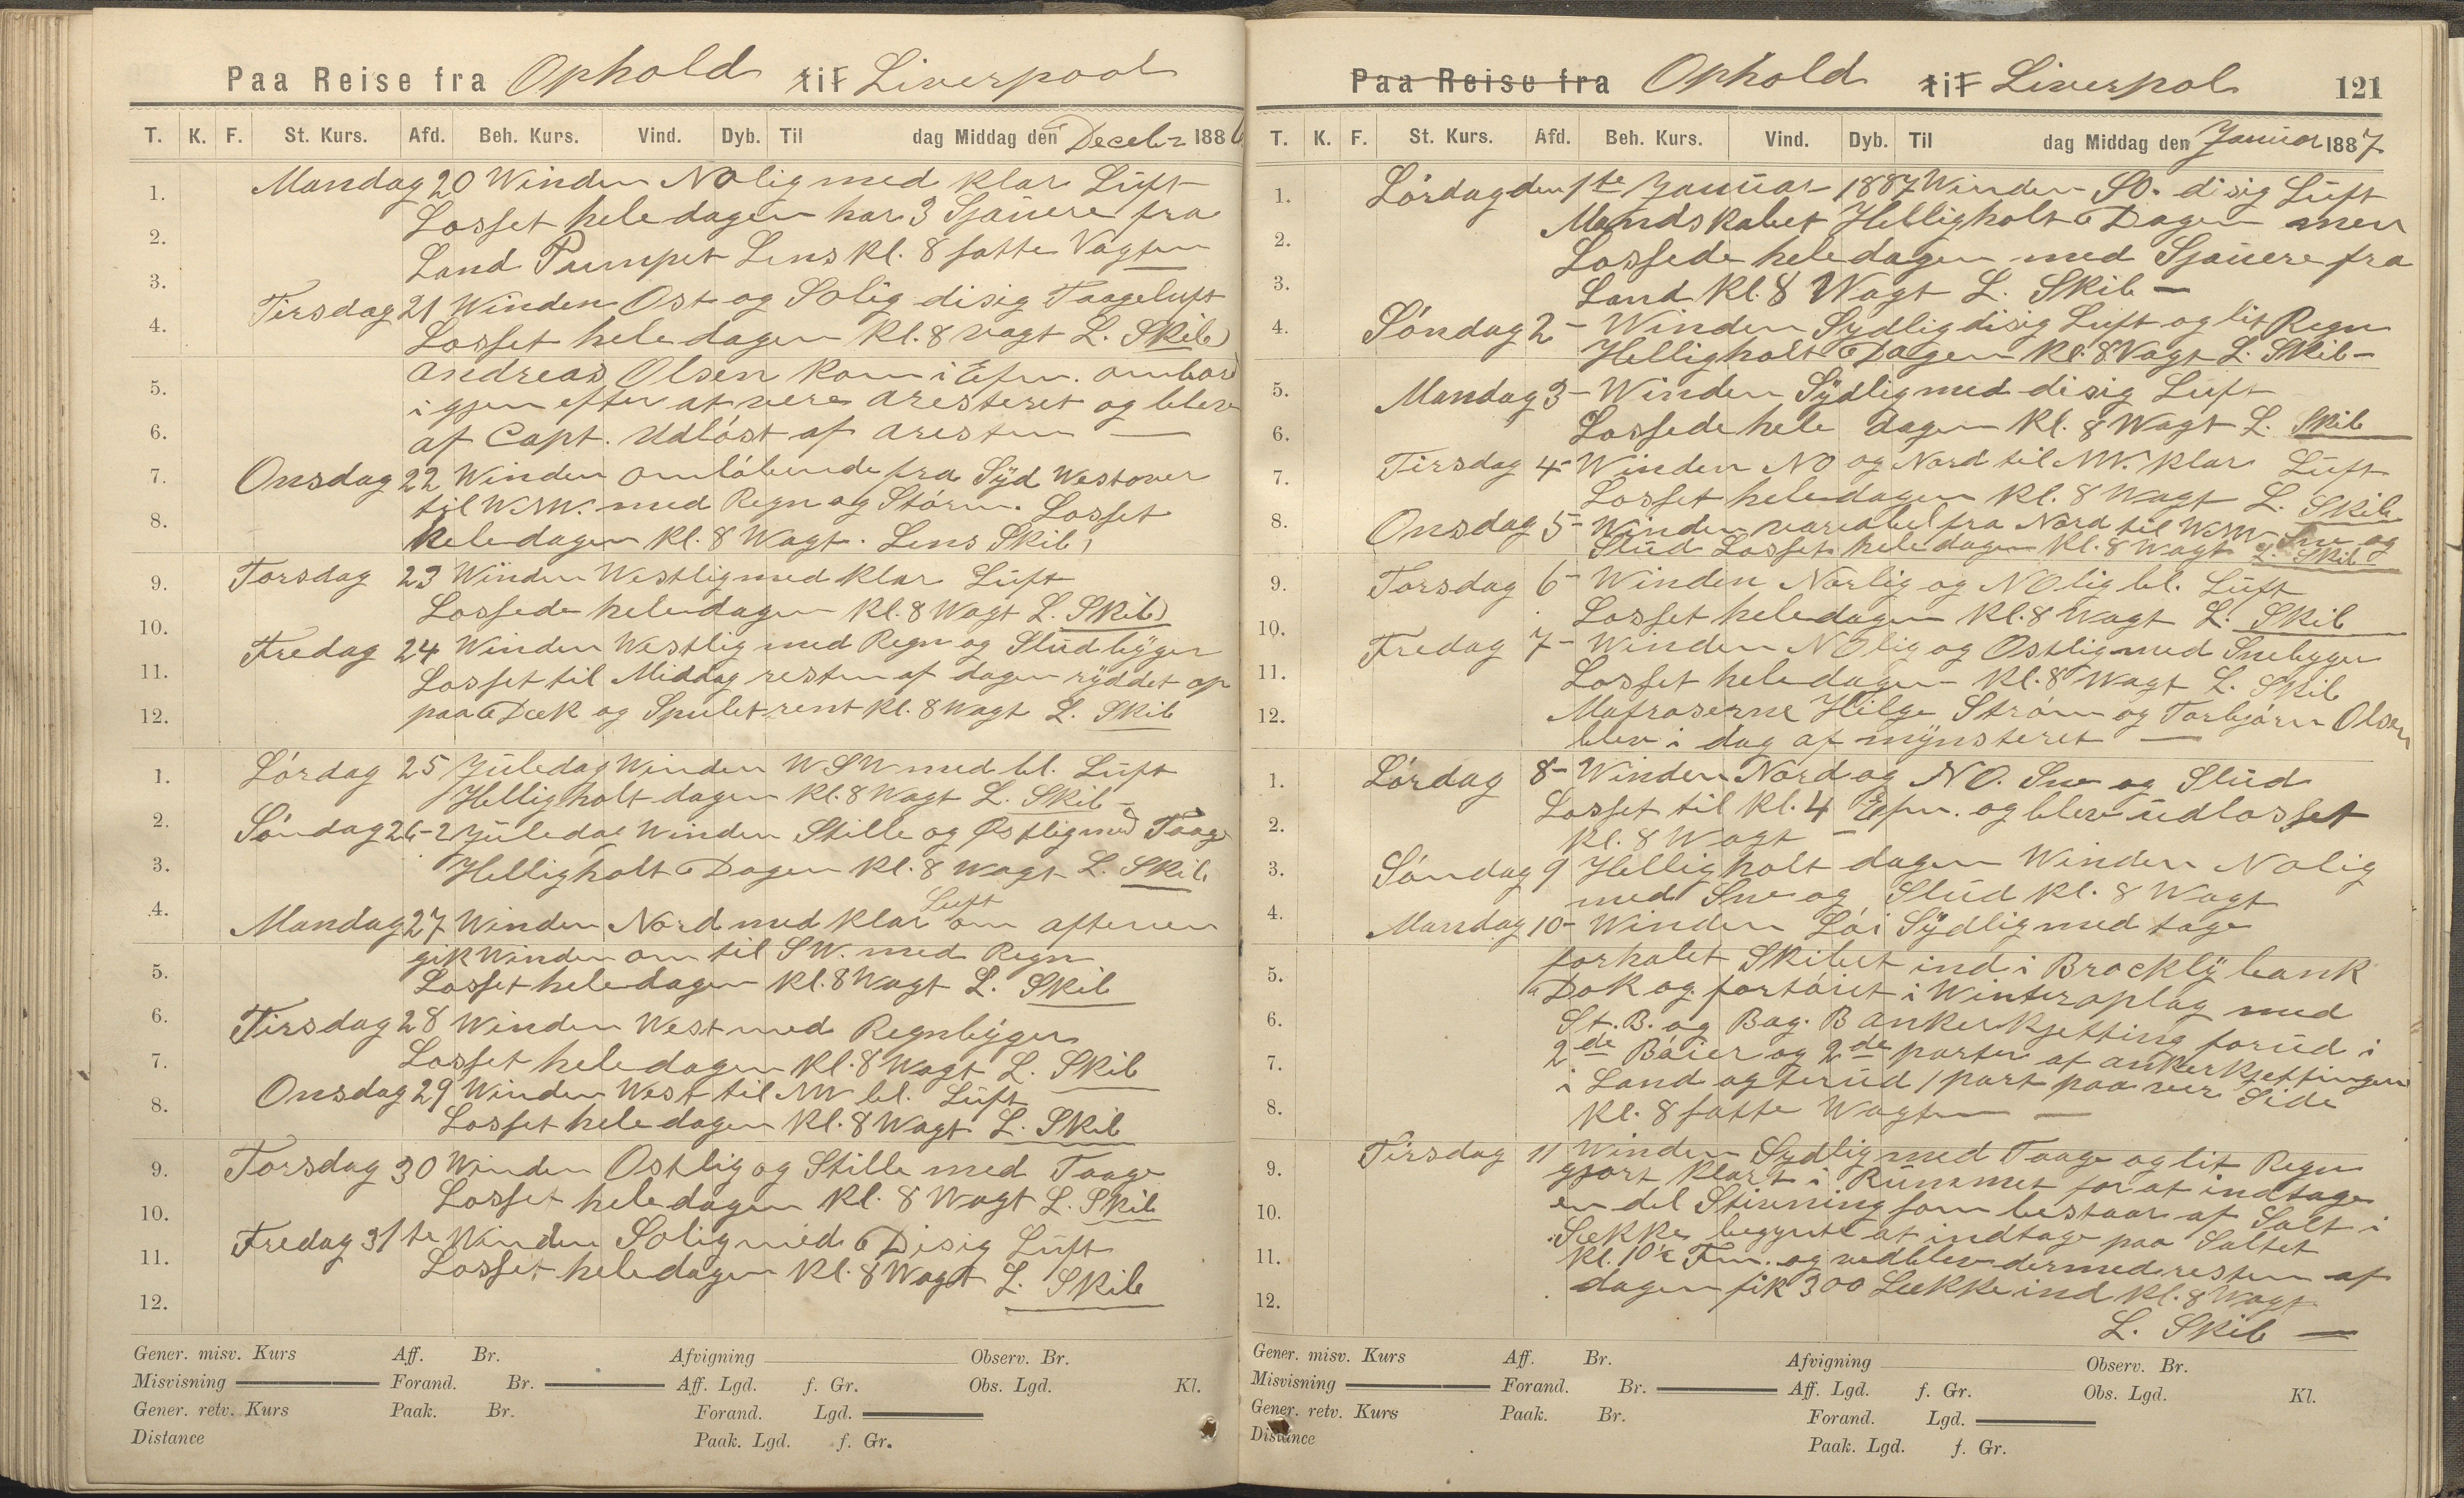 Paa Reise fra Ophold til Liverpool
T. K. F. St. Kurs. Afd. Beh. Kurs. Vind. Dyb. Til dag Middag den Decebr 1886
Mandag 20 Winden NOlig med klar Luft
Losset hele dagen har 3 Sjauere fra
Land Pumpet Lens kl. 8 satte Vagten
Tirsdag 21 Winden Ost og SOlig disig Taageluft
Losset hele dagen kl. 8 vagt L. Skib
Andreas Olsen kom i Efm. ombord
igjen efter at være aresteret og blev
af Capt. Udløst af aresten —
Onsdag 22 Winden omløbende fra Syd Westover
til WNW. med Regn og Storm. Losset
hele dagen kl. 8 Wagt. Lens Skib,
Torsdag 23 Winden Westlig med klar Luft
Lossede hele dagen kl. 8 Wagt L. Skib
Fredag 24 Winden Westlig med Regn og Sludbyger
Losset til Middag resten af dagen ryddet op
paa Dæk og Spulet rent kl. 8 Wagt L. Skib
Lørdag 25 Juledag Winden WSW med bl. Luft
Helligholt dagen kl. 8 Wagt L. Skib –
Søndag 26 – 2 Juledag Winden Stille og Østlig med Taage
Helligholt Dagen kl. 8 Wagt L. Skib
Mandag 27 Winden Nord med klar Luft om aftenen
gik Winden om til SW. med Regn
Losset hele dagen kl. 8 Wagt L. Skib
Tirsdag 28 Winden West med Regnbyger
Losset hele dagen kl. 8 Wagt L. Skib
Onsdag 29 Winden West til NW bl. Luft
Losset hele dagen kl. 8 Wagt L. Skib
Torsdag 30 Winden Ostlig og Stille med Taage
Losset hele dagen kl. 8 Wagt L. Skib
Fredag 31te Winden SOlig med Disig Luft
Losset hele dagen kl. 8 Wagt L. Skib
1.
2.
3.
4.
5.
6.
7.
8.
9.
10.
11.
12.
1.
2.
3.
4.
5.
6.
7.
8.
9.
10.
11.
12.
Gener. misv. Kurs Aff. Br. Afvigning Observ. Br.
Misvisning Forand. Br. Aff. Lgd. f. Gr. Obs. Lgd. Kl.
Gener. retv. Kurs Paak. Br. Forand. Lgd.
Distance Paak. Lgd. f. Gr.
Paa Reise fra Ophold til Liverpol 121
T. K. F. St. Kurs. Afd. Beh. Kurs. Vind. Dyb. Til dag Middag den Januar 1887
Lørdag den 1te Januar 1887 Winden SO. disig Luft
Mandskabet Helligholt Dagen men
Lossede hele dagen med Sjauere fra
Land kl. 8 Wagt L. Skib —
Søndag 2 – Winden Sydlig disig Luft og lit Regn
Helligholt Dagen kl. 8 Vagt L. Skib –
Mandag 3 – Winden Sydlig med disig Luft
Lossede hele dagen kl. 8 Wagt L. Skib
Tirsdag 4 – Winden NO og Nord til NW. klar Luft
Losset hele dagen kl. 8 Wagt L. Skib
Onsdag 5 – Winden variabel fra Nord til WNW Sne og
Slud Losset hele dagen kl. 8 Wagt L. Skib
Torsdag 6 – Winden Norlig og NOlig bl. Luft
Losset hele dagen kl. 8 Wagt L. Skib
Fredag 7 – Winden NOlig og Ostlig med Snebyger
Losset hele dagen kl. 8 Wagt L. Skib
Matroserne Helge Strøm og Torbjørn Olsen
blev i dag af mynsteret —
Lørdag 8 – Winden Nord og NO. Sne og Slud
Losset til kl. 4 Efm. og blev udlosset
kl. 8 Wagt –
Søndag 9 Helligholt dagen Winden NOlig
med Sne og Slud kl. 8 Wagt
Mandag 10 – Winden Løi Sydlig med tage
forhalet Skibet ind i Brockly bank
Dok og fortøiet i Winteroplag med
St. B. og Bag. B ankerkjetting forud i
2de Bøier og 2de parter af ankerkjettingen
i Land agterud 1 part paa ver Side
kl. 8 satte Wagten —
Tirsdag 11 Winden Sydlig med Taage og lit Regn
gjort klart i Rummet for at indtage
en del Stivning som bestaar af Salt i
Sække begynte at indtage paa Saltet
kl. 10½ Fm. og vedblev dermed resten af
dagen fik 300 Sække ind kl. 8 Wagt
L. Skib —
1.
2.
3.
4.
5.
6.
7.
8.
9.
10.
11.
12.
1.
2.
3.
4.
5.
6.
7.
8.
9.
10.
11.
12.
Gener. misv. Kurs Aff. Br. Afvigning Observ. Br.
Misvisning Forand. Br. Aff. Lgd. f. Gr. Obs. Lgd. Kl.
Gener. retv. Kurs Paak. Br. Forand. Lgd.
Distance Paak. Lgd. f. Gr.